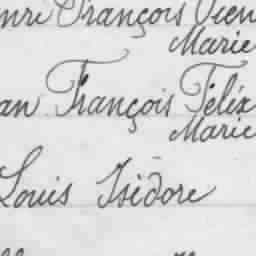 François
Marie
François Félix
Marie
Louis Isidore